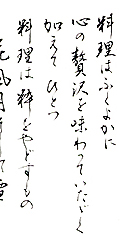 料理はふくよかに
心の贅沢を味わっていたゞく
加えてひとつ
料理は粋をやどすもの
花風月
雪